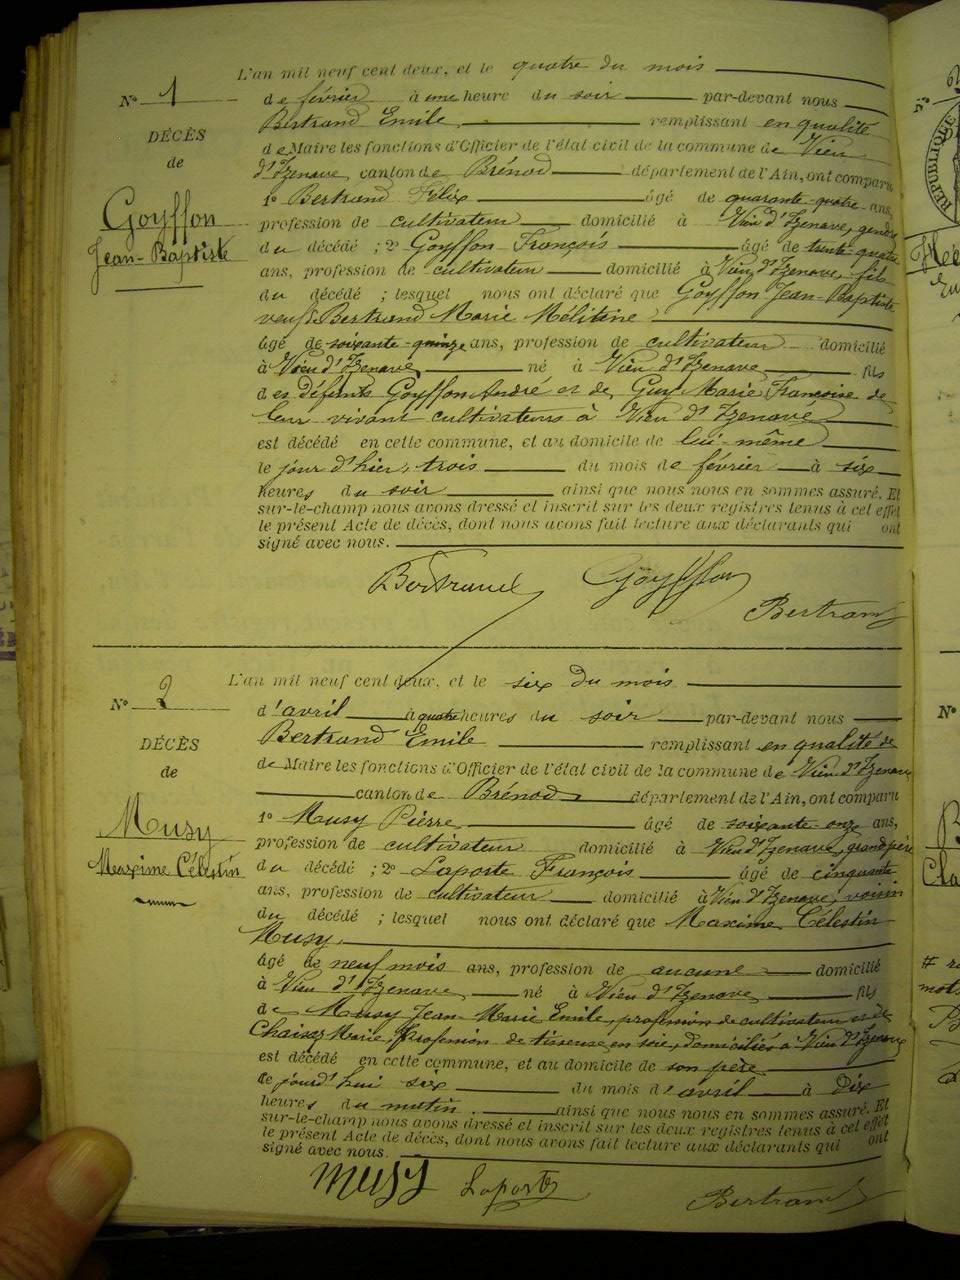 L'an mil neuf cent deux, et le quatre du mois
N° 1
de février à une heure du soir par-devant nous
Bertrand Emile remplissant en qualité
DÉCÈS
de Maire les fonctions d'Officier de l'état civil de la commune de Vieu
de
d'Izenave, canton de Brénod département de l'Ain, ont comparu
1° Bertrand Félix âgé de quarante-quatre ans,
Goyffon
Jean-Baptiste
profession de cultivateur domicilié à Vieu d'Izenave, gendre
du décédé ; 2° Goyffon François âgé de trente-quatre
ans, profession de cultivateur domicilié à Vieu d'Izenave, fils
du décédé ; lesquel nous ont déclaré que Goyffon Jean-Baptiste
veuf de Bertrand Marie Mélitine
âgé de soixante-quinze ans, profession de cultivateur domicilié
à Vieu d'Izenave, né à Vieu d'Izenave fils
des défunts Goyffon André et de Guy Marie Françoise de
leur vivant cultivateurs à Vieu d'Izenave
est décédé en cette commune, et au domicile de lui-même
le jour d'hier, trois du mois de février à six
heures du soir ainsi que nous nous en sommes assuré. Et
sur-le-champ nous avons dressé et inscrit sur les deux registres tenus à cet effet
le présent Acte de décès, dont nous avons fait lecture aux déclarants qui ont
signé avec nous.
Bertrand Goyffon
Bertrand
L'an mil neuf cent deux, et le six du mois
N° 2
d'avril à quatre heures du soir par-devant nous
Bertrand Emile remplissant en qualité de
DÉCÈS
de Maire les fonctions d'Officier de l'état civil de la commune de Vieu d'Izenave
de
canton de Brénod département de l'Ain, ont comparu
1° Musy Pierre âgé de soixante onze ans,
Musy
Maxime Célestin
profession de cultivateur domicilié à Vieu d'Izenave, grand père
du décédé ; 2° Laporte François âgé de cinquante
ans, profession de cultivateur domicilié à Vieu d'Izenave, voisin
du décédé ; lesquel nous ont déclaré que Maxime Célestin
Musy,
âgé de neuf mois ans, profession de aucune domicilié
à Vieu d'Izenave, né à Vieu d'Izenave fils
de Musy Jean-Marie Emile, profession de cultivateur et de
Marie, profession de tisseuse en soie, domiciliés à Vieu d'Izenave
est décédé en cette commune, et au domicile de son père
ce jourd'hui six du mois d'avril à dix
heures du matin. ainsi que nous nous en sommes assuré. Et
sur-le-champ nous avons dressé et inscrit sur les deux registres tenus à cet effet
le présent Acte de décès, dont nous avons fait lecture aux déclarants qui ont
signé avec nous.
MUSY Laporte
Bertrand
RÉPUBLIQUE
N°